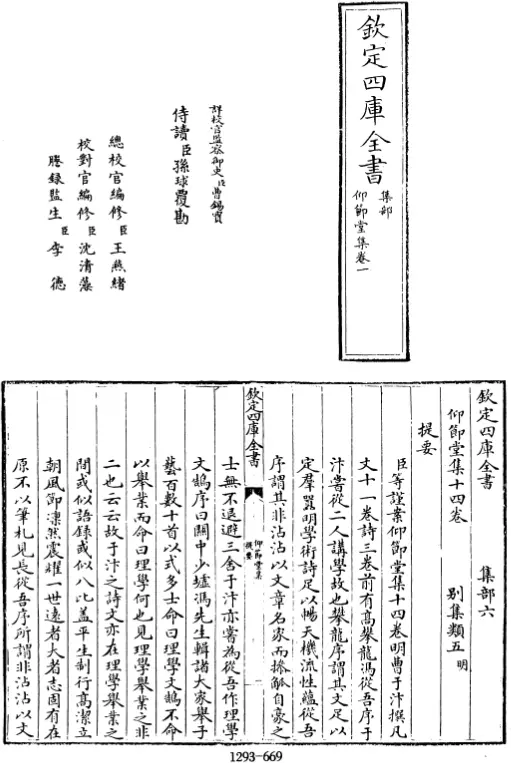 欽定四庫全書
集部
仰節堂集卷一
詳校官監察御史臣曹錫寶
侍讀臣孫球覆勘
總校官編修臣王燕緒
校對官編修臣沈清藻
謄錄監生臣李德
欽定四庫全書 集部六
仰節堂集十四卷 别集類五 明
提要
臣等謹案仰節堂集十四卷明曹于汴撰凡
文十一卷詩三卷前有高攀龍馮從吾序于
汴嘗從二人講學故也攀龍序謂其文足以
定羣囂明學術詩足以暢天機流性蘊從吾
序謂其非沾沾以文章名家而操觚自豪之
欽定四庫全書
仰節堂集
提要
士無不退避三舍于汴亦嘗為從吾作理學
文鵠序曰關中少墟馮先生輯諸大家舉子
藝百數十首以式多士命曰理學文鵠不命
以舉業而命曰理學何也見理學舉業之非
二也云云故于汴之詩文亦在理學舉業之
間或似語錄或似八比盖平生制行高潔立
朝風節凜然震耀一世遠者大者志固有在
原不以筆札見長從吾序所謂非沾沾以文
1293-669